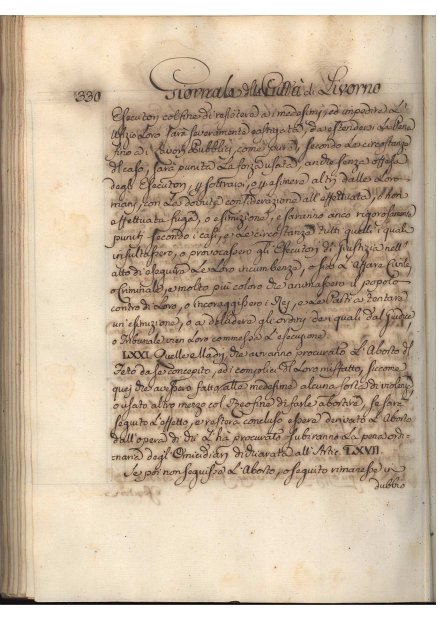 330 Giornale della Città di Livorno
Esecutori col fine di resistere a i medesimi, ed impedire L'
Ufizio Loro sarà severamente gastigata, da estendersi La Pena
fino a i Lavori Pubblici, come pure, secondo Le circostanze
del caso, sarà punita La forza usata anche senza offesa
degli Esecutori, per sottrarsi, o per esimere altri dalle Loro
mani, con Le dovute considerazioni all'effettuata, o non
effettuata fuga, o esimizione, e saranno anco rigorosamente
puniti secondo i casi, e Le circostanze tutti quelli i quali
insultassero, o provocassero gli Esecutori di Giustizia nell'
atto di eseguire Le Loro incumbenze, o sia L'affare Civile,
o Criminale, e molto più coloro che animassero il popolo
contro di Loro, o incoraggissero i Rei, e Le Parti a tentare
un'esimizione, o a deludere gli ordini dei quali dal Giudice
o Tribunale vien Loro commessa L'esecuzione.
LXXI. Quelle Madri, che avranno procurato L'Aborto del
Feto da se concepito, ed i complici del Loro misfatto, siccome
quei che avessero fatto alle medesime alcuna sorte di violenza
o usato altro mezzo col reo fine di farle abortire, se sarà
seguito L'effetto, e resterà concluso essere derivato L'Aborto
dall'opera di chi L'ha procurato subiranno La pena ordi-
naria degli Omicidiarj dichiarata all'Arte LXVII.
Se poi non seguisse L'Aborto, o seguito rimanesse in
dubbio